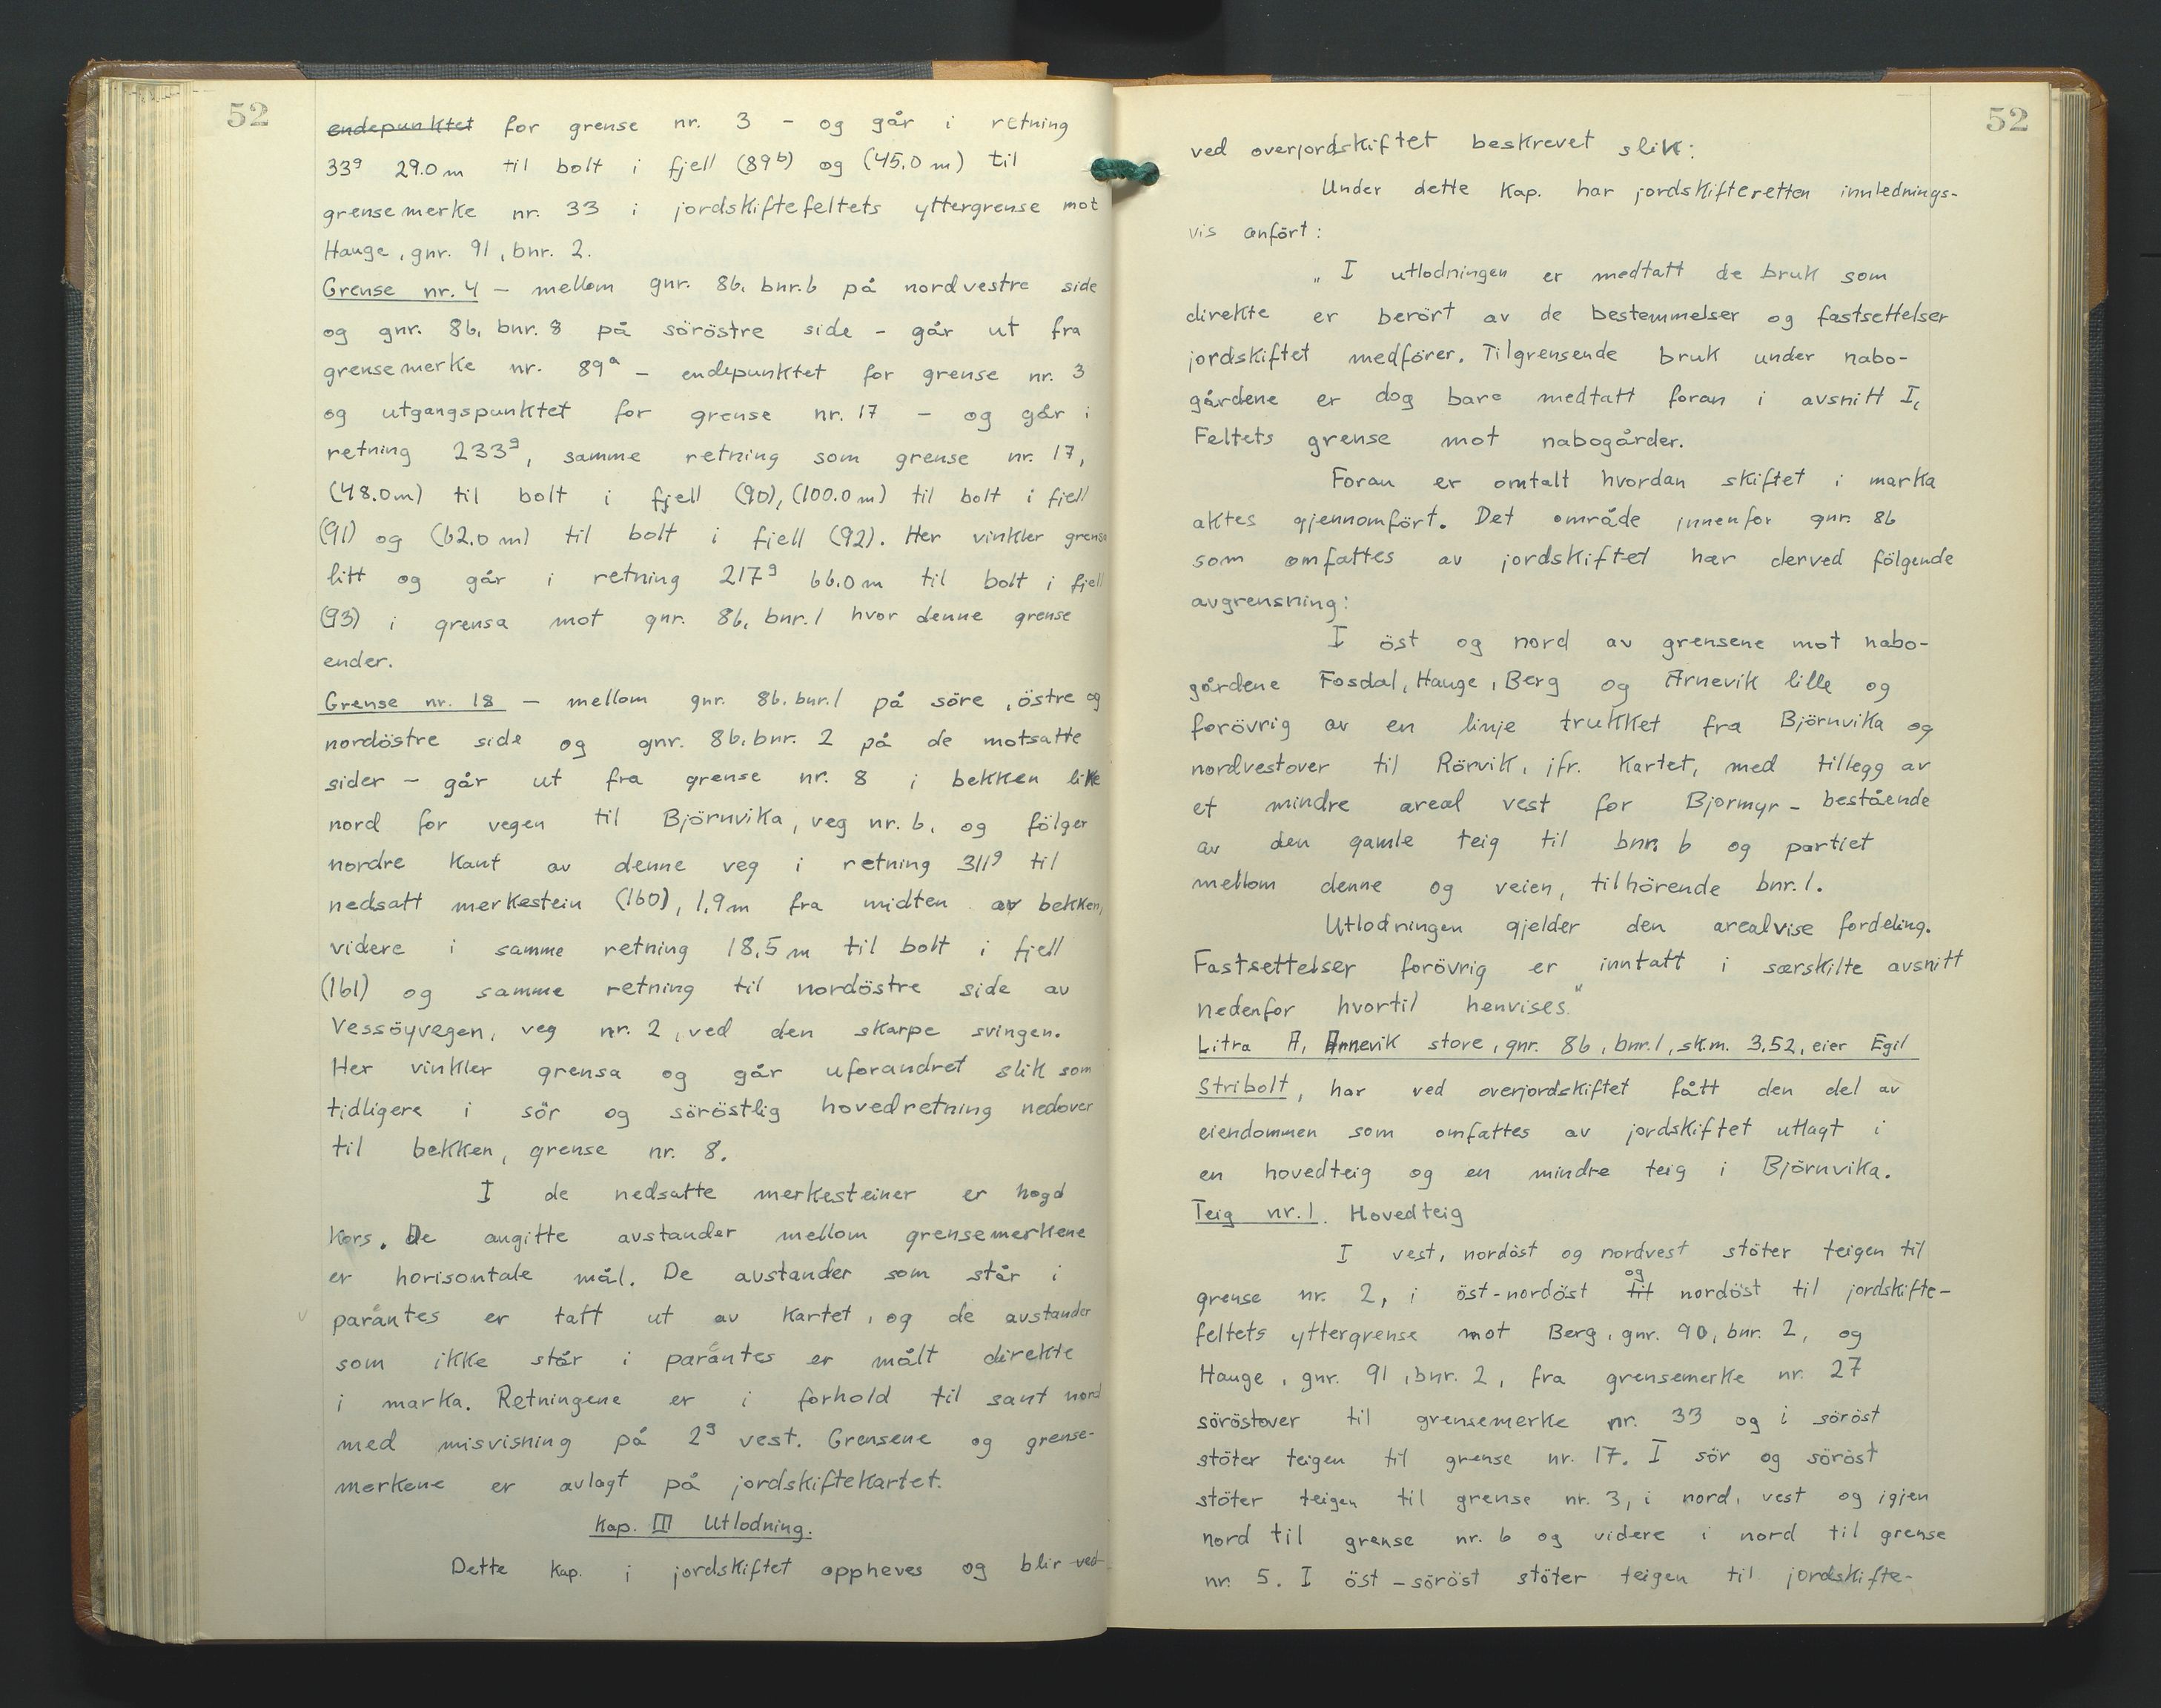 52
endepunktet for grense nr. 3 - og går i retning
33g 29.0 m til bolt i fjell (89b) og (45.0 m) til
grensemerke nr. 33 i jordskiftefeltets yttergrense mot
Hauge, gnr. 91, bnr. 2.
Grense nr. 4 - mellom gnr. 86, bnr. 6 på nordvestre side
og gnr. 86, bnr. 8 på söröstre side - går ut fra
grensemerke nr. 89a - endepunktet for grense nr. 3
og utgangspunktet for grense nr. 17 - og går i
retning 233g, samme retning som grense nr. 17,
(48.0m) til bolt i fjell (90), (100.0 m) til bolt i fjell
(91) og (62.0 m) til bolt i fjell (92). Her vinkler grensa
litt og går i retning 217g 66.0 m til bolt i fjell
(93) i grensa mot gnr. 86, bnr. 1 hvor denne grense
ender.
Grense nr. 18 - mellom gnr. 86, bnr. 1 på söre, östre og
nordöstre side og gnr. 86, bnr. 2 på de motsatte
sider - går ut fra grense nr. 8 i bekken like
nord for vegen til Björnvika, veg nr. 6, og fölger
nordre kant av denne veg i retning 311g til
nedsatt merkestein (160), 1,9 m fra midten av bekken,
videre i samme retning 18,5 m til bolt i fjell
(161) og samme retning til nordöstre side av
Vessöyvegen, veg nr. 2, ved den skarpe svingen.
Her vinkler grensa og går uforandret slik som
tidligere i sör og söröstlig hovedretning nedover
til bekken, grense nr. 8.
I de nedsatte merkesteiner er hogd
kors. De angitte avstander mellom grensemerkene
er horisontale mål. De avstander som står i
parantes er tatt ut av kartet, og de avstander
som ikke står i parantes er målt direkte
i marka. Retningene er i forhold til sant nord
med misvisning på 2g vest. Grensene og grense-
merkene er avlagt på jordskiftekartet.
Kap. III Utlodning.
Dette kap. i jordskiftet oppheves og blir ved
52
ved overjordskiftet beskrevet slik:
Under dette kap. har jordskifteretten innlednings-
vis anfört:
„ I utlodningen er medtatt de bruk som
direkte er berört av de bestemmelser og fastsettelser
jordskiftet medförer. Tilgrensende bruk under nabo-
gårdene er dog bare medtatt foran i avsnitt I,
Feltets grense mot nabogårder.
Foran er omtalt hvordan skiftet i marka
aktes gjennomfört. Det område innenfor gnr. 86
som omfattes av jordskiftet har derved fölgende
avgrensning:
I öst og nord av grensene mot nabo-
gårdene Fosdal, Hauge, Berg og Arnevik lille og
forövrig av en linje trukket fra Björnvika og
nordvestover til Rörvik, jfr. kartet, med tillegg av
et mindre areal vest for Bjormyr - bestående
av den gamle teig til bnr. 6 og partiet
mellom denne og veien, tilhörende bnr. 1.
Utlodningen gjelder den arealvise fordeling.
Fastsettelser forövrig er inntatt i særskilte avsnitt
nedenfor hvortil henvises."
Litra A, Arnevik store, gnr. 86, bnr. 1, sk.m. 3,52, eier Egil
Stribolt, har ved overjordskiftet fått den del av
eiendommen som omfattes av jordskiftet utlagt i
en hovedteig og en mindre teig i Björnvika.
Teig nr. 1. Hovedteig
I vest, nordöst og nordvest stöter teigen til
grense nr. 2, i öst-nordöst til og nordöst til jordskifte-
feltets yttergrense mot Berg, gnr. 90, bnr. 2, og
Hauge, gnr. 91, bnr. 2, fra grensemerke nr. 27
söröstover til grensemerke nr. 33 og i söröst
stöter teigen til grense nr. 17. I sör og söröst
stöter teigen til grense nr. 3, i nord, vest og igjen
nord til grense nr. 6 og videre i nord til grense
nr. 5. I öst - söröst stöter teigen til jordskifte-